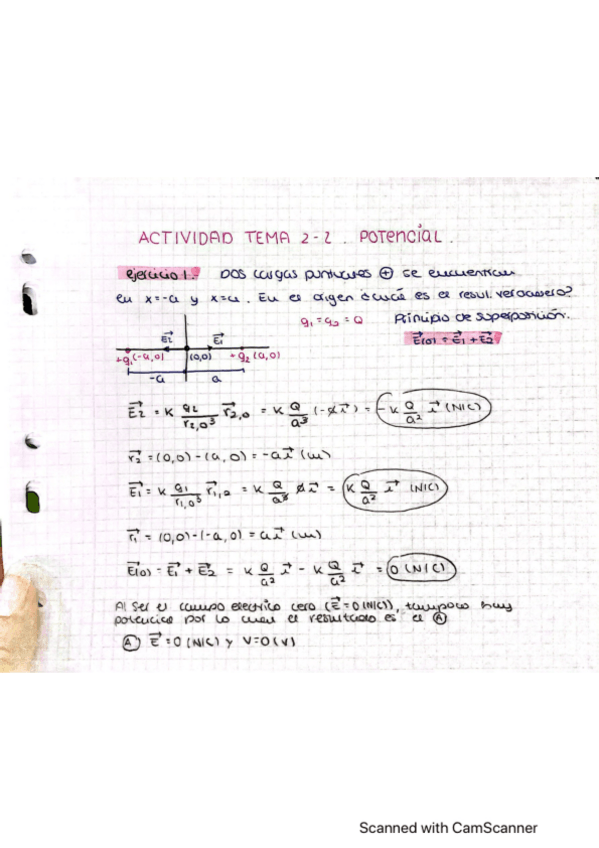 ACTIVIDAD TEMA 2-2. Potencial.
ejercicio 1.- Dos cargas puntuales ⊕ se encuentran
en x=-a y x=a. En el origen ¿cuál es el resul. verdadero?
q₁ = q₂ = Q Principio de superposición.
E⃗(0) = E⃗₁ + E⃗₂
E⃗₂ E⃗₁
+q₁(-a,0) (0,0) +q₂(a,0)
-a a
E⃗₂ = K q₂/r₂,₀³ r⃗₂,₀ = K Q/a³ (-a i⃗) = -K Q/a² i⃗ (N/C)
r⃗₂ = (0,0) - (a,0) = -a i⃗ (m)
E⃗₁ = K q₁/r₁,₀³ r⃗₁,₂ = K Q/a³ a i⃗ = K Q/a² i⃗ (N/C)
r⃗₁ = (0,0) - (-a,0) = a i⃗ (m)
E⃗(0) = E⃗₁ + E⃗₂ = K Q/a² i⃗ - K Q/a² i⃗ = 0 (N/C)
Al ser el campo electrico cero (E⃗ = 0 (N/C)), tampoco hay
potencial por lo cual el resultado es el Ⓐ
Ⓐ E⃗ = 0 (N/C) y V = 0 (V)
Scanned with CamScanner